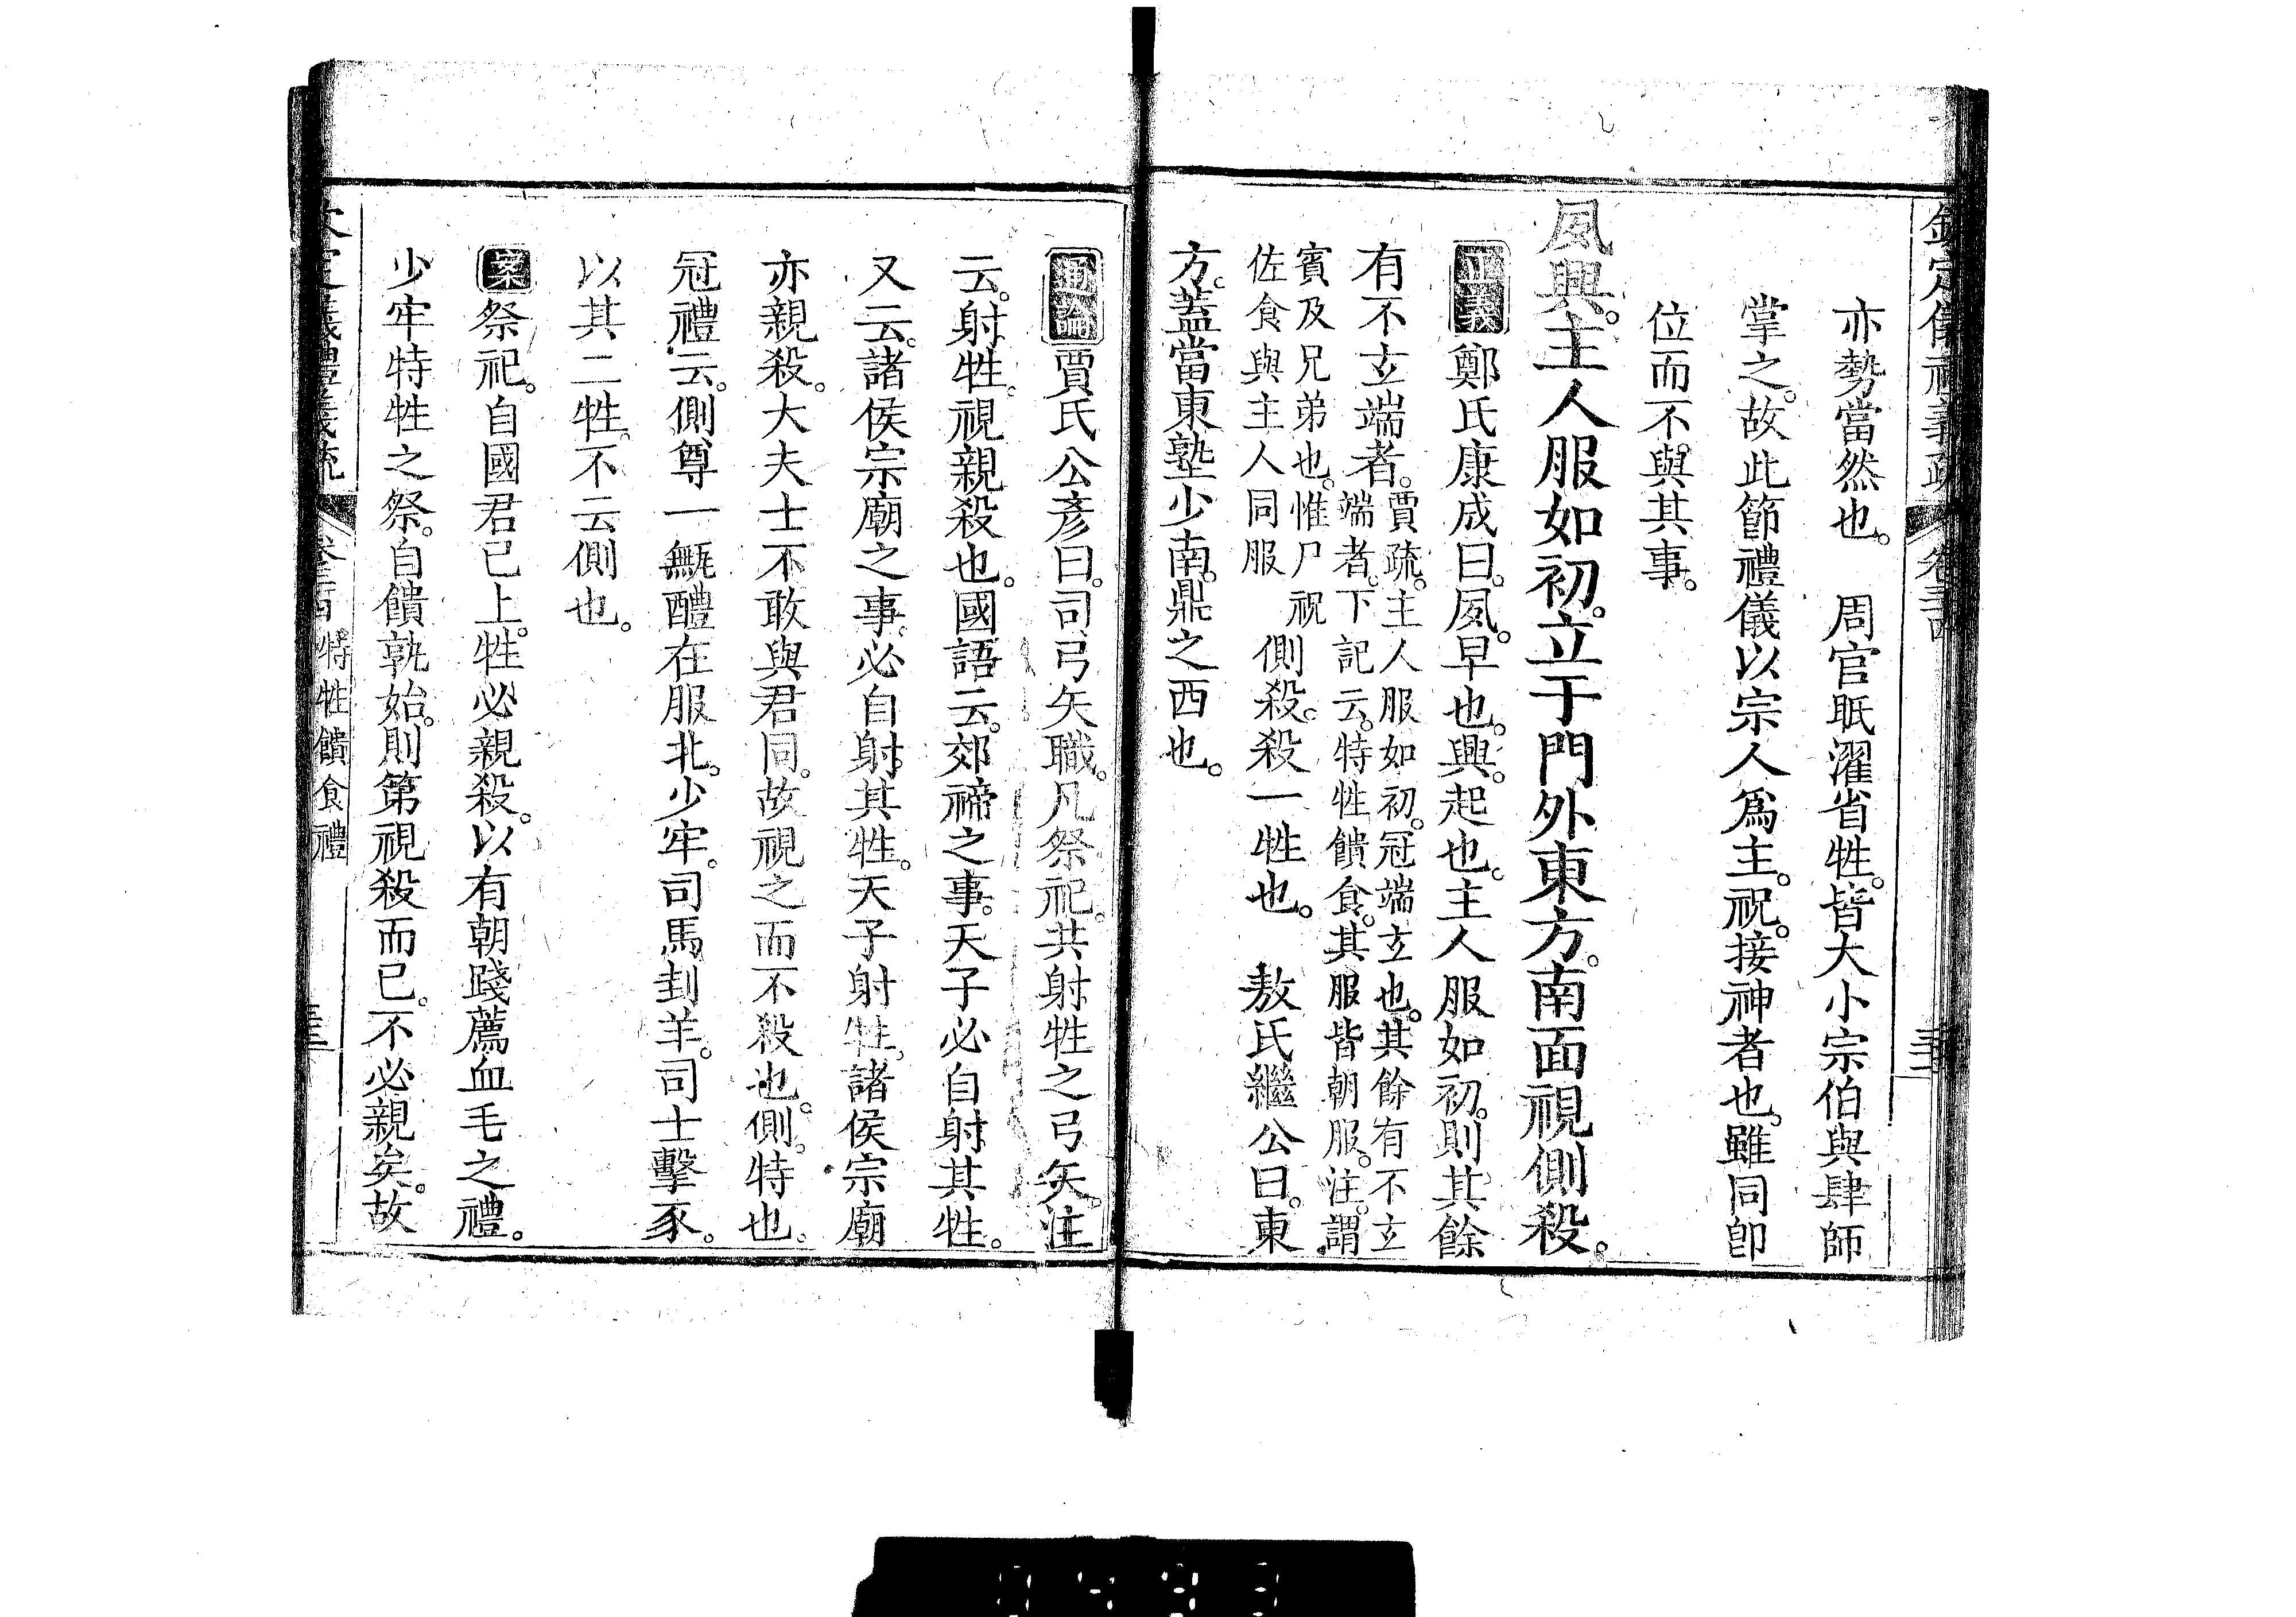 欽定儀禮義疏 卷三十四 三十三
亦勢當然也。 周官眡濯省牲。皆大小宗伯與肆師
掌之。故此節禮儀以宗人爲主。祝。接神者也。雖同卽
位而不與其事。
夙興。主人服如初。立于門外東方。南面視側殺。
正義 鄭氏康成曰。夙。早也。興。起也。主人服如初。則其餘
有不玄端者。賈疏。主人服如初。冠端玄也。其餘有不玄
端者。下記云。特牲饋食。其服皆朝服。注。謂
賓及兄弟也。惟尸祝
佐食與主人同服
側殺。殺一牲也。 敖氏繼公曰。東
方。蓋當東塾少南。鼎之西也。
通論 賈氏公彥曰。司弓矢職。凡祭祀。共射牲之弓矢。注
云。射牲。視親殺也。國語云。郊禘之事。天子必自射其牲。
又云。諸侯宗廟之事。必自射其牲。天子射牲。諸侯宗廟
亦親殺。大夫士不敢與君同。故視之而不殺也。側。特也。
冠禮云。側尊一甒醴在服北。少牢。司馬刲羊。司士擊豕。
以其二牲。不云側也。
案 祭祀。自國君已上。牲必親殺。以有朝踐薦血毛之禮。
少牢特牲之祭。自饋孰始。則第視殺而已。不必親矣。故
義禮義疏 特牲饋食禮